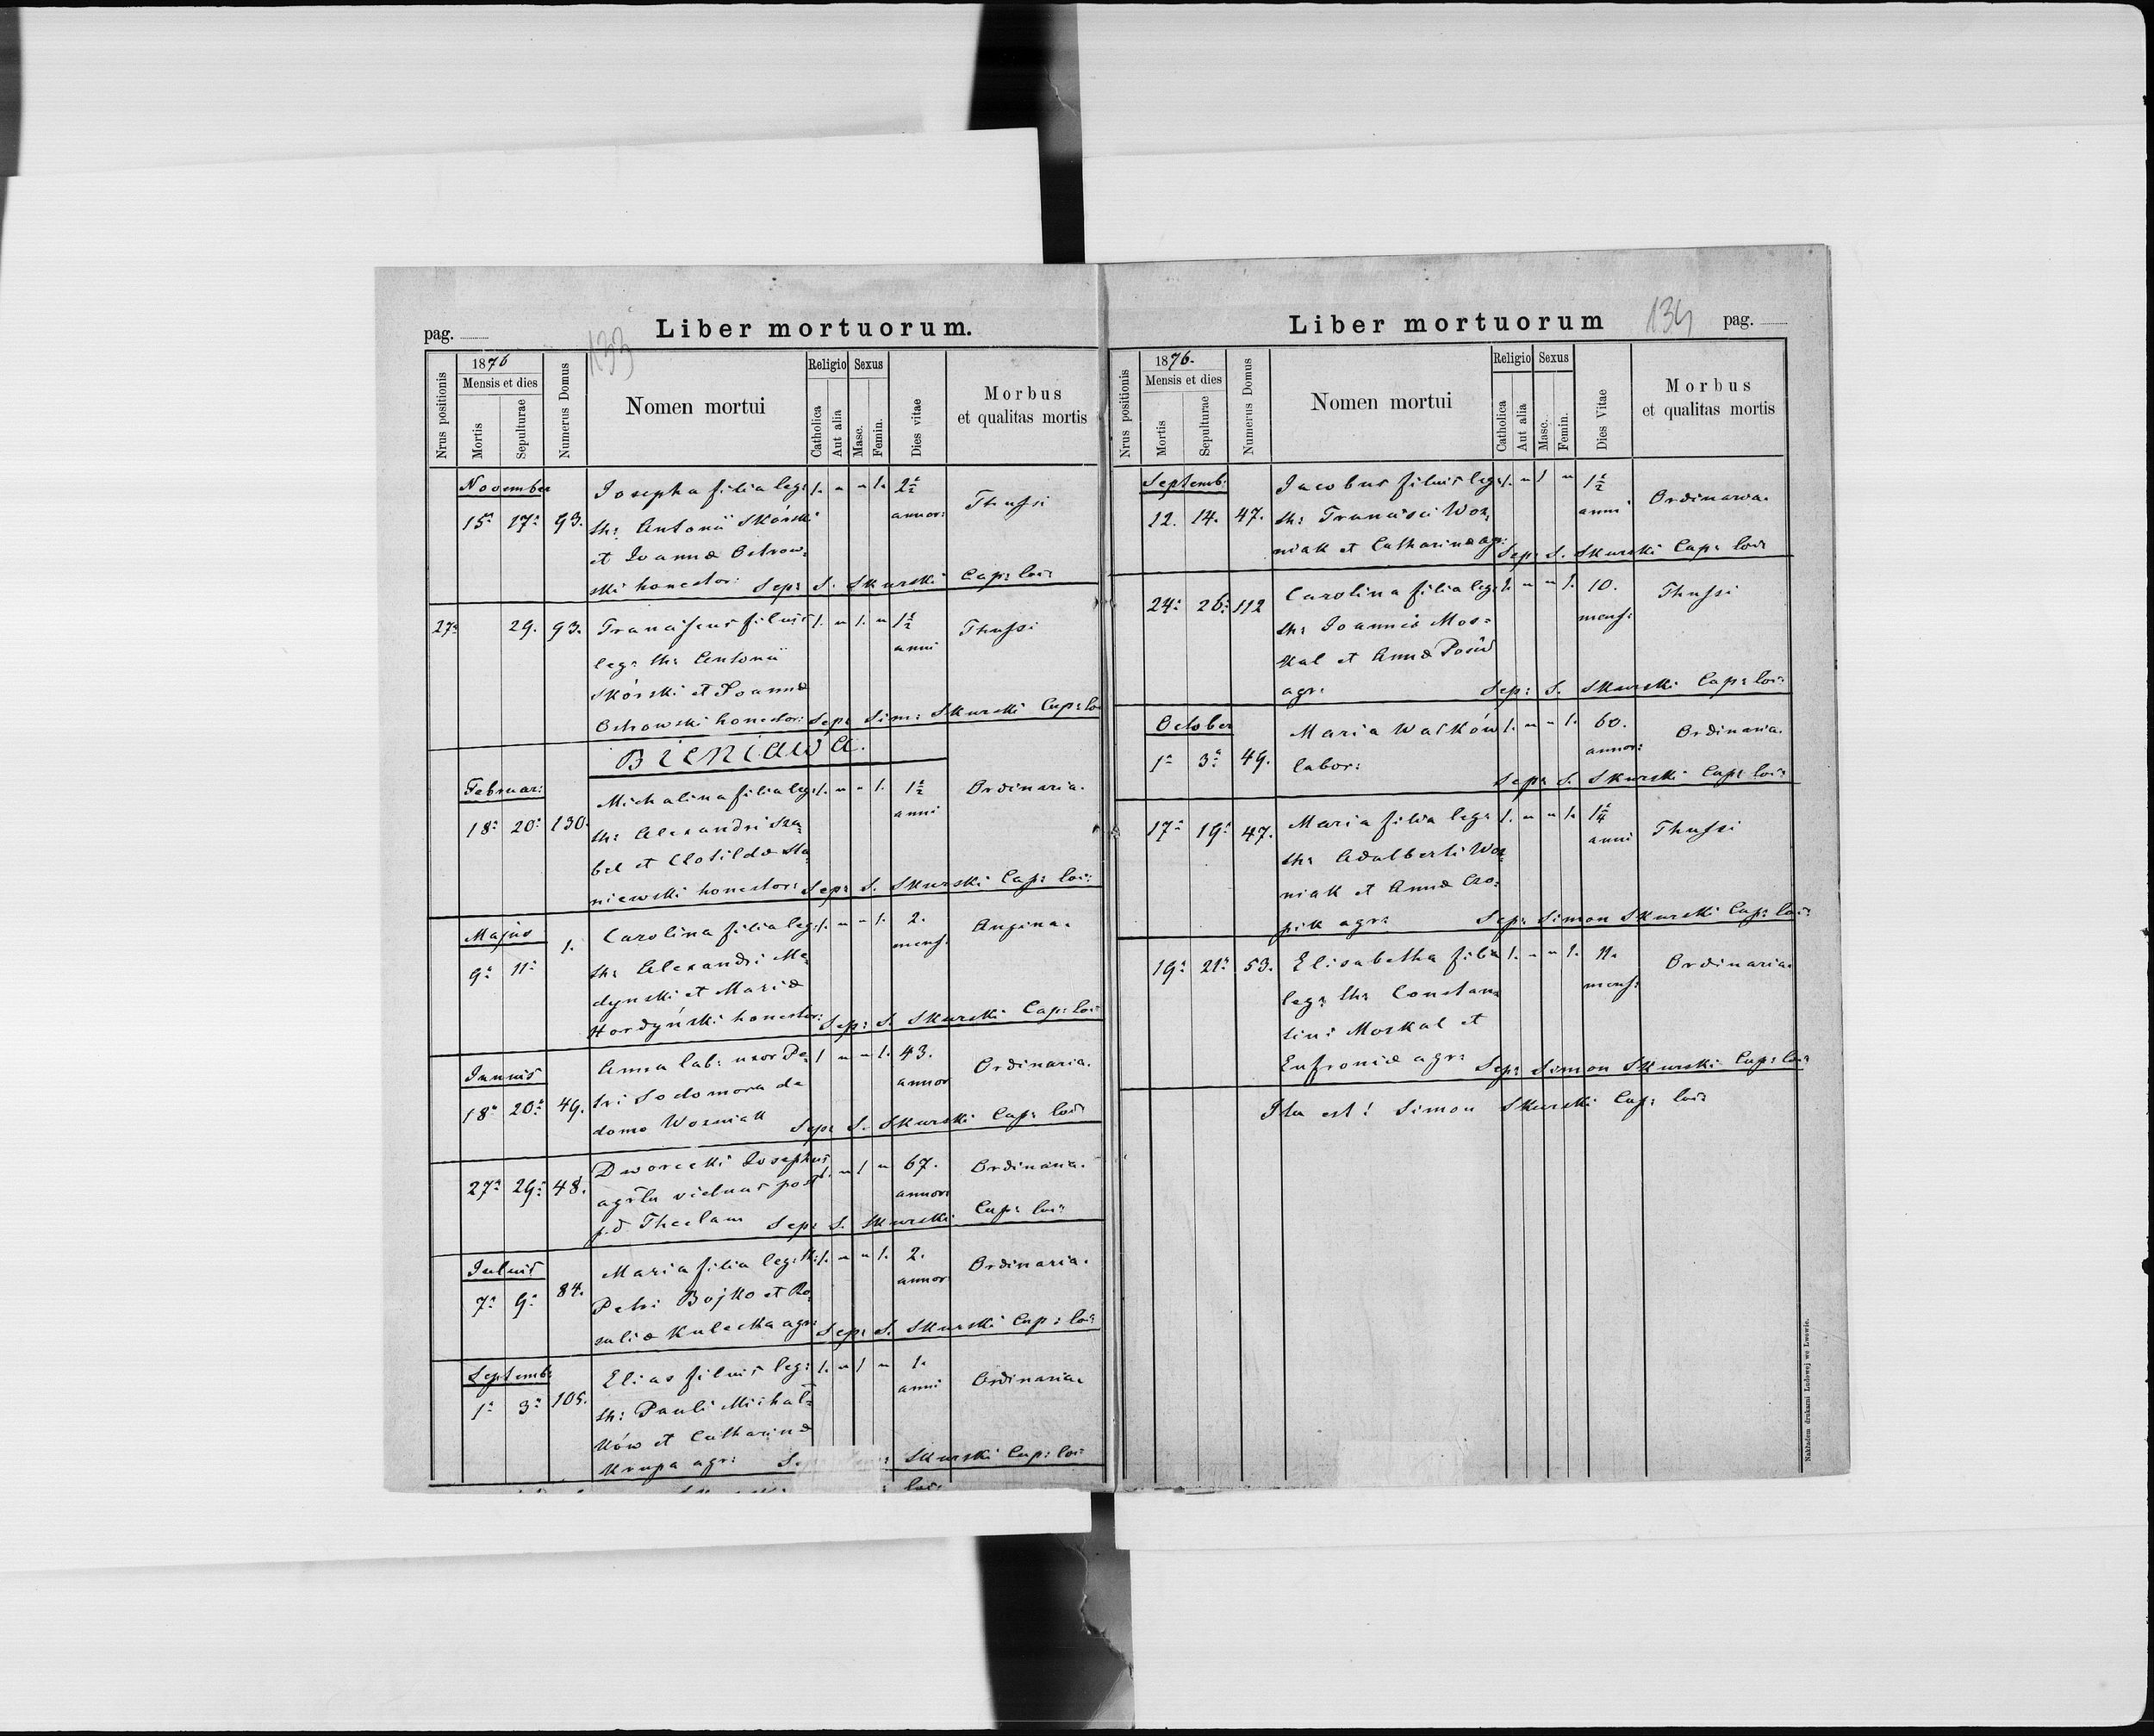 pag.
Liber mortuorum.
133
Nrus positionis
1876
Mensis et dies
Mortis
Sepulturae
Numerus Domus
Nomen mortui
Religio
Catholica
Aut alia
Sexus
Masc.
Femin.
Dies vitae
Morbus
et qualitas mortis
November
15ª 17ª 93. Josepha filia leg: 1. " " 1. 2½ Thussi
th: Antonii Skórski annor:
et Joannæ Ostrow-
ski honestor: Sep: S. Skurski Cap: loci
27ª 29. 93. Franciscus filius 1. " 1. " 1½ Thussi
leg: th: Antonii anni
Skórski et Joannæ
Ostrowski honestor: Sep: Sim: Skurski Cap: loci
Bieniawa.
Februar:
18ª 20ª 130. Michalina filia leg: 1. " " 1. 1½ Ordinaria.
th: Alexandri Sza- anni
bel et Clotildæ Sta-
niewski honestor: Sep: S. Skurski Cap: loci
Majus
9ª 11ª 1. Carolina filia leg: 1. " " 1. 2. Angina.
th: Alexandri Me- mens:
dynski et Mariæ
Hordyński honestor: Sep: S. Skurski Cap: loci
Junius
18ª 20ª 49. Anna lab: uxor Pe- 1 " " 1. 43. Ordinaria.
tri Sodomora de annor
domo Wozniak Sep: S. Skurski Cap: loci
27ª 29ª 48. Dworecki Josephus 1. " 1 " 67. Ordinaria.
agrla viduus post annor:
p.d. Theclam Sep: S. Skurski Cap: loci
Julius
7ª 9ª 84. Maria filia leg: th: 1. " " 1. 2. Ordinaria.
Petri Bojko et Ro- annor
saliæ Kulecka agr: Sep: S. Skurski Cap: loci
Septemb:
1ª 3ª 105. Elias filius leg: 1. " 1 " 1. Ordinaria.
th: Pauli Michal- anni
ków et Catharinæ
Krupa agr: Skurski Cap: loci
loci
Liber mortuorum
134
pag.
Nrus positionis
1876.
Mensis et dies
Mortis
Sepulturae
Numerus Domus
Nomen mortui
Religio
Catholica
Aut alia
Sexus
Masc.
Femin.
Dies Vitae
Morbus
et qualitas mortis
Septemb:
12. 14. 47. Jacobus filius leg: 1. " 1 " 1½ Ordinaria.
th: Francisci Woz- anni
niak et Catharinæ agr: Sep: S. Skurski Cap: loci
24ª 26ª 112 Carolina filia leg: 1. " " 1. 10. Thussi
th: Joannis Mos- mens:
kal et Annæ
agr: Sep: S. Skurski Cap: loci
October
1ª 3ª 49. Maria Walków 1. " " 1. 60. Ordinaria.
labor: annor:
Sep: S. Skurski Cap: loci
17ª 19ª 47. Maria filia leg: 1. " " 1. 1¼ Thussi
th: Adalberti Woz- anni
niak et Annæ Czo-
pik agr: Sep: Simon Skurski Cap: loci
19ª 21ª 53. Elisabetha filia 1. " " 1. 11. Ordinaria.
leg: th: Constan- mens:
tini Moskal et
Eufroniæ agr: Sep: Simon Skurski Cap: loci
Ita est! Simon Skurski Cap: loci
Nakładem drukarni Ludowej we Lwowie.